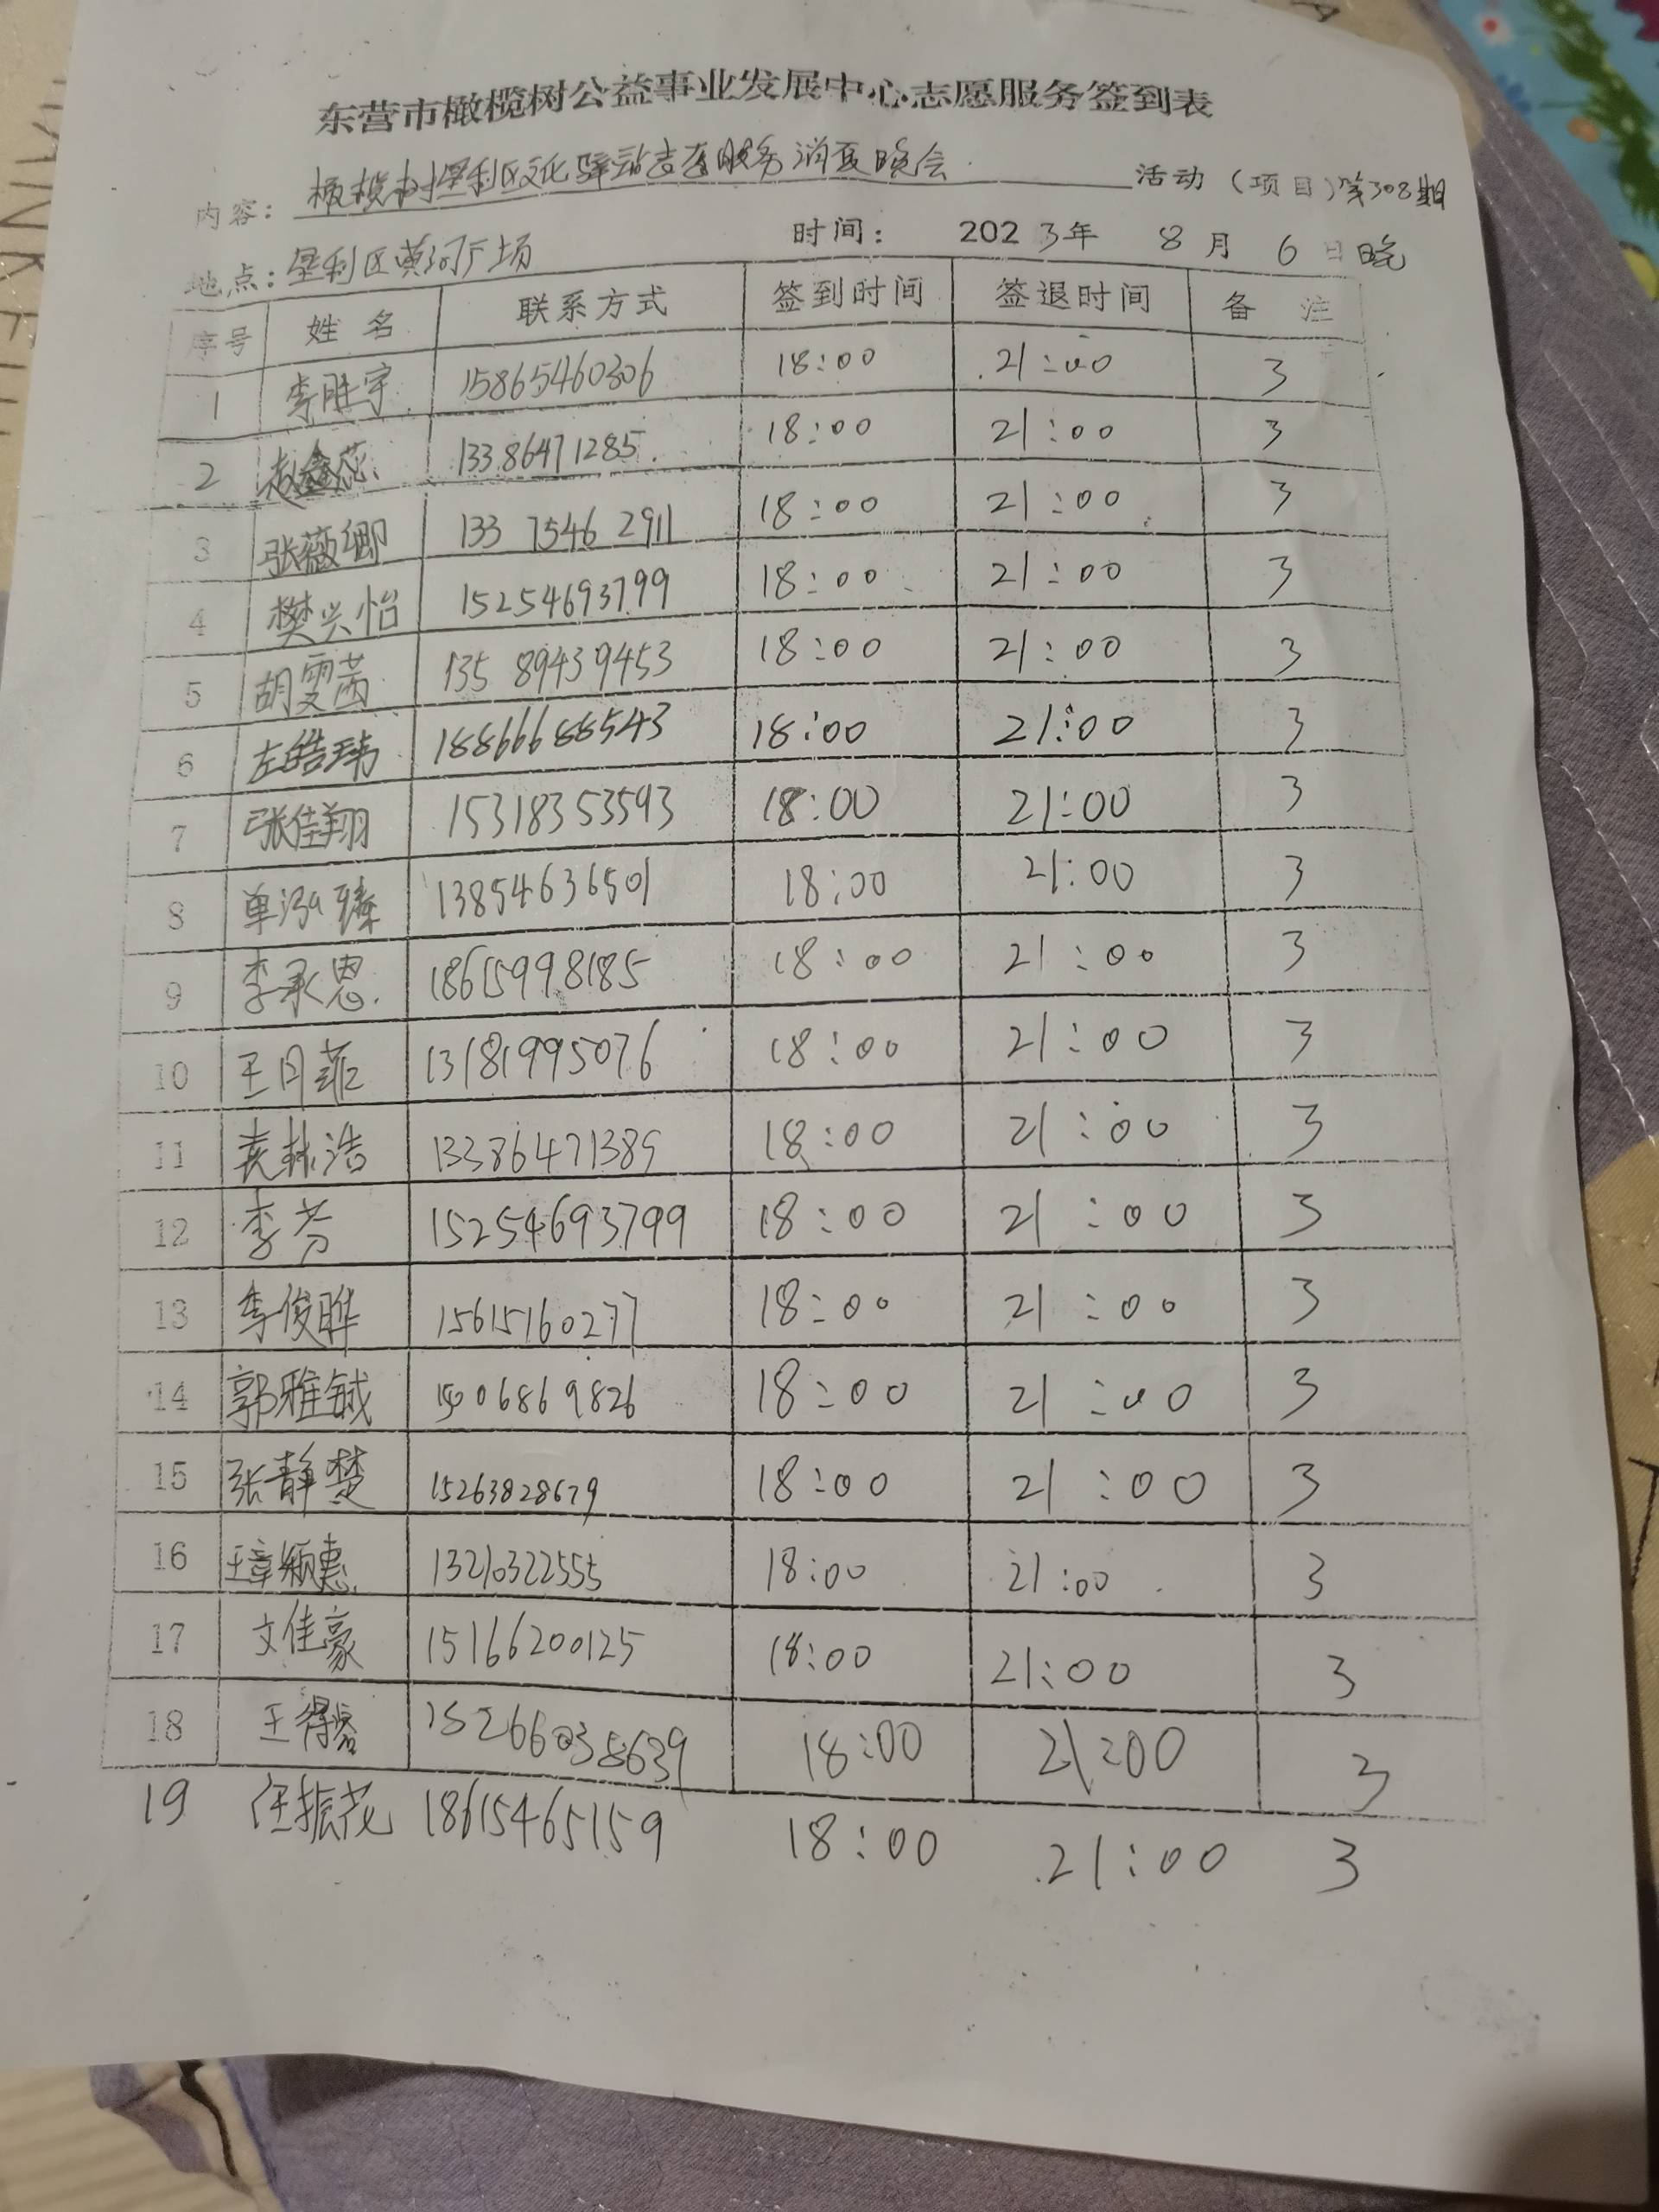 东营市橄榄树公益事业发展中心志愿服务签到表
内容: 橄榄树垦利区文化驿站志愿服务消夏晚会 活动（项目）第308期
地点: 垦利区黄河广场 时间: 2023年 8月 6日晚
序号 姓名 联系方式 签到时间 签退时间 备注
1 李胜宇 15865460306 18:00 21:00 3
2 赵鑫蕊 13386471285 18:00 21:00 3
3 张薇卿 133 7546 2911 18:00 21:00 3
4 樊兴怡 15254693799 18:00 21:00 3
5 胡雯茜 135 89439453 18:00 21:00 3
6 左皓玮 18866688543 18:00 21:00 3
7 张佳翔 15318353593 18:00 21:00 3
8 单泓臻 13854636501 18:00 21:00 3
9 李承恩 18615998185 18:00 21:00 3
10 王月菲 13181995076 18:00 21:00 3
11 袁林浩 13386471389 18:00 21:00 3
12 李芳 15254693799 18:00 21:00 3
13 李俊晔 15615160277 18:00 21:00 3
14 郭雅铖 15006869826 18:00 21:00 3
15 张静楚 15263828679 18:00 21:00 3
16 王章颖惠 13210322555 18:00 21:00 3
17 文佳豪 15166200125 18:00 21:00 3
18 王得睿 15266038639 18:00 21:00 3
19 任振花 18615465159 18:00 21:00 3